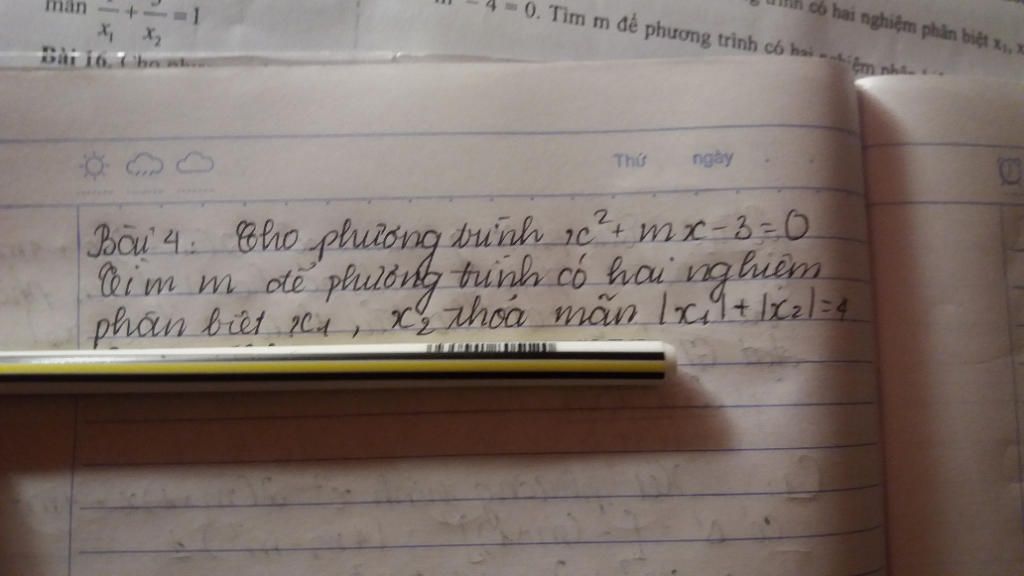 mãn 1/x₁ + 3/x₂ = 1
- 4 = 0. Tìm m để phương trình có hai
trình có hai nghiệm phân biệt x₁, x
Bài 16. Cho
Thứ ngày
Bài 4: Cho phương trình x² + mx - 3 = 0
Tìm m để phương trình có hai nghiệm
phân biệt x₁, x₂ thoả mãn |x₁| + |x₂| = 4